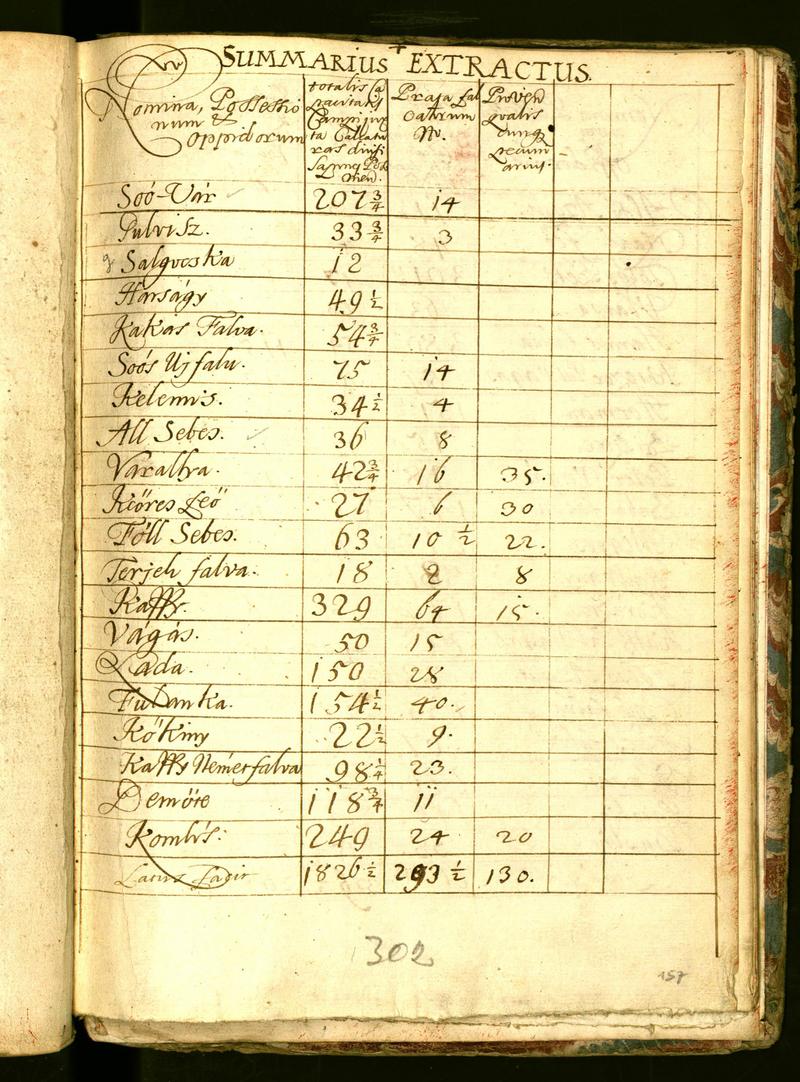 SUMMARIUS EXTRACTUS.
Nomina, Possessio
num et
Oppidorum
totalis Ca
pacitatis
Campi jux
ta Calcatu
ras divisi
Prata fal
catorum
No.
Soó-Vár 207 3/4 14
Pulvisz. 33 3/4 3
Salgocska 12
Harságy 49 1/2
Kakas Falva. 54 3/4
Soós Ujfalu. 75 14
Kelemis. 34 1/2 4
All Sebes. 36 8
Várallya. 42 3/4 16 35.
Kőres Leő 27 6 30
Föll Sebes. 63 10 1/2 22.
Terjeh falva. 18 2 8
Kappy. 329 64 15.
Vágás. 50 15
Lada. 150 28
Fulanka. 154 1/2 40.
Kőkiny 22 1/2 9.
Kappy Németfalva 98 1/4 23.
Demőte 118 3/4 11
Komlós: 249 24 20
Latus Facit 1826 1/2 293 1/2 130.
302
157